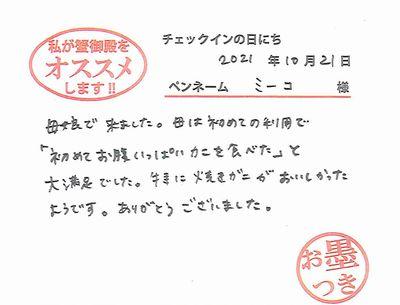 私が蟹御殿を
オススメ
します!!
チェックインの日にち
2021 年 10 月 21 日
ペンネーム ミーコ 様
母娘で来ました。母は初めての利用で
「初めてお腹いっぱいカニを食べた」と
大満足でした。特に焼きガニがおいしかった
ようです。ありがとうございました。
お墨
つき